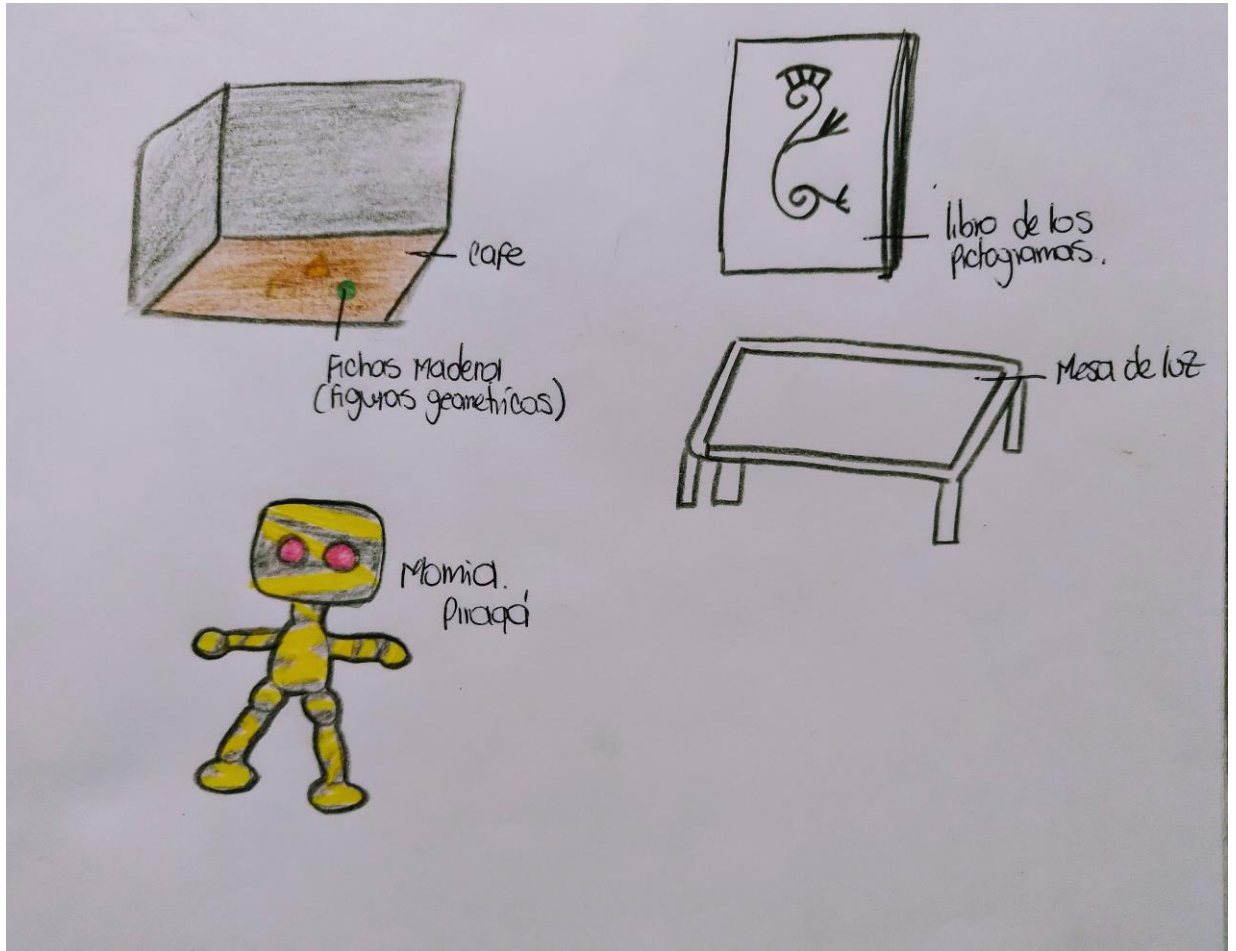 cafe
Fichas Madera
(figuras geometricas)
libro de los
pictogramas.
Mesa de luz
Momia.
Piragá